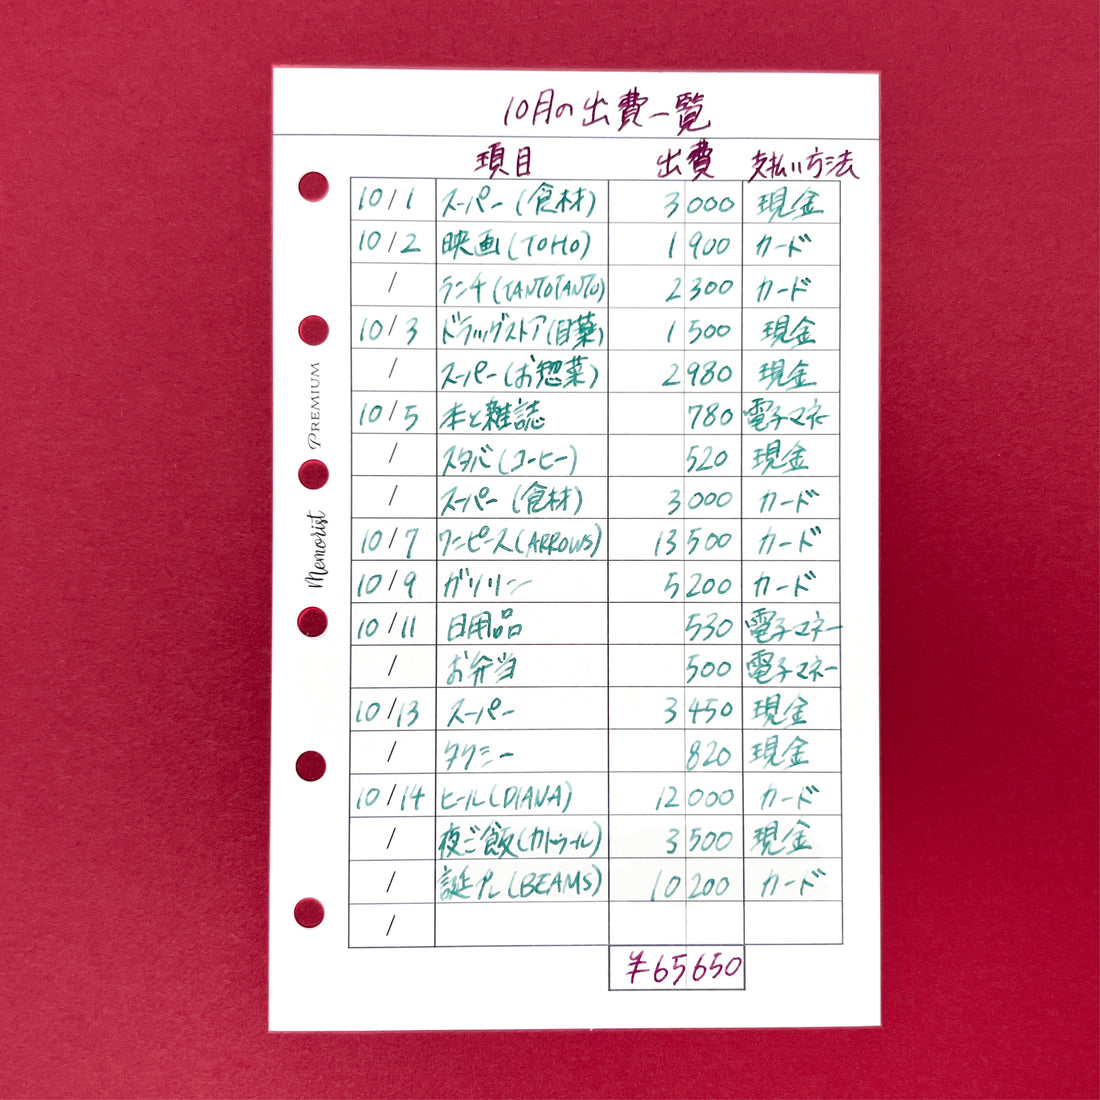 10月の出費一覧
項目 出費 支払い方法
10/1 スーパー(食材) 3000 現金
10/2 映画(TOHO) 1900 カード
/ ランチ(TANTOTANTO) 2300 カード
10/3 ドラッグストア(目薬) 1500 現金
/ スーパー(お惣菜) 2980 現金
10/5 本と雑誌 780 電子マネー
/ スタバ(コーヒー) 520 現金
/ スーパー(食材) 3000 カード
10/7 ワンピース(ARROWS) 13500 カード
10/9 ガソリン 5200 カード
10/11 日用品 530 電子マネー
/ お弁当 500 電子マネー
10/13 スーパー 3450 現金
/ タクシー 820 現金
10/14 ヒール(DIANA) 12000 カード
/ 夜ご飯(カトゥール) 3500 現金
/ 誕プレ(BEAMS) 10200 カード
/
¥65650
Memorist PREMIUM